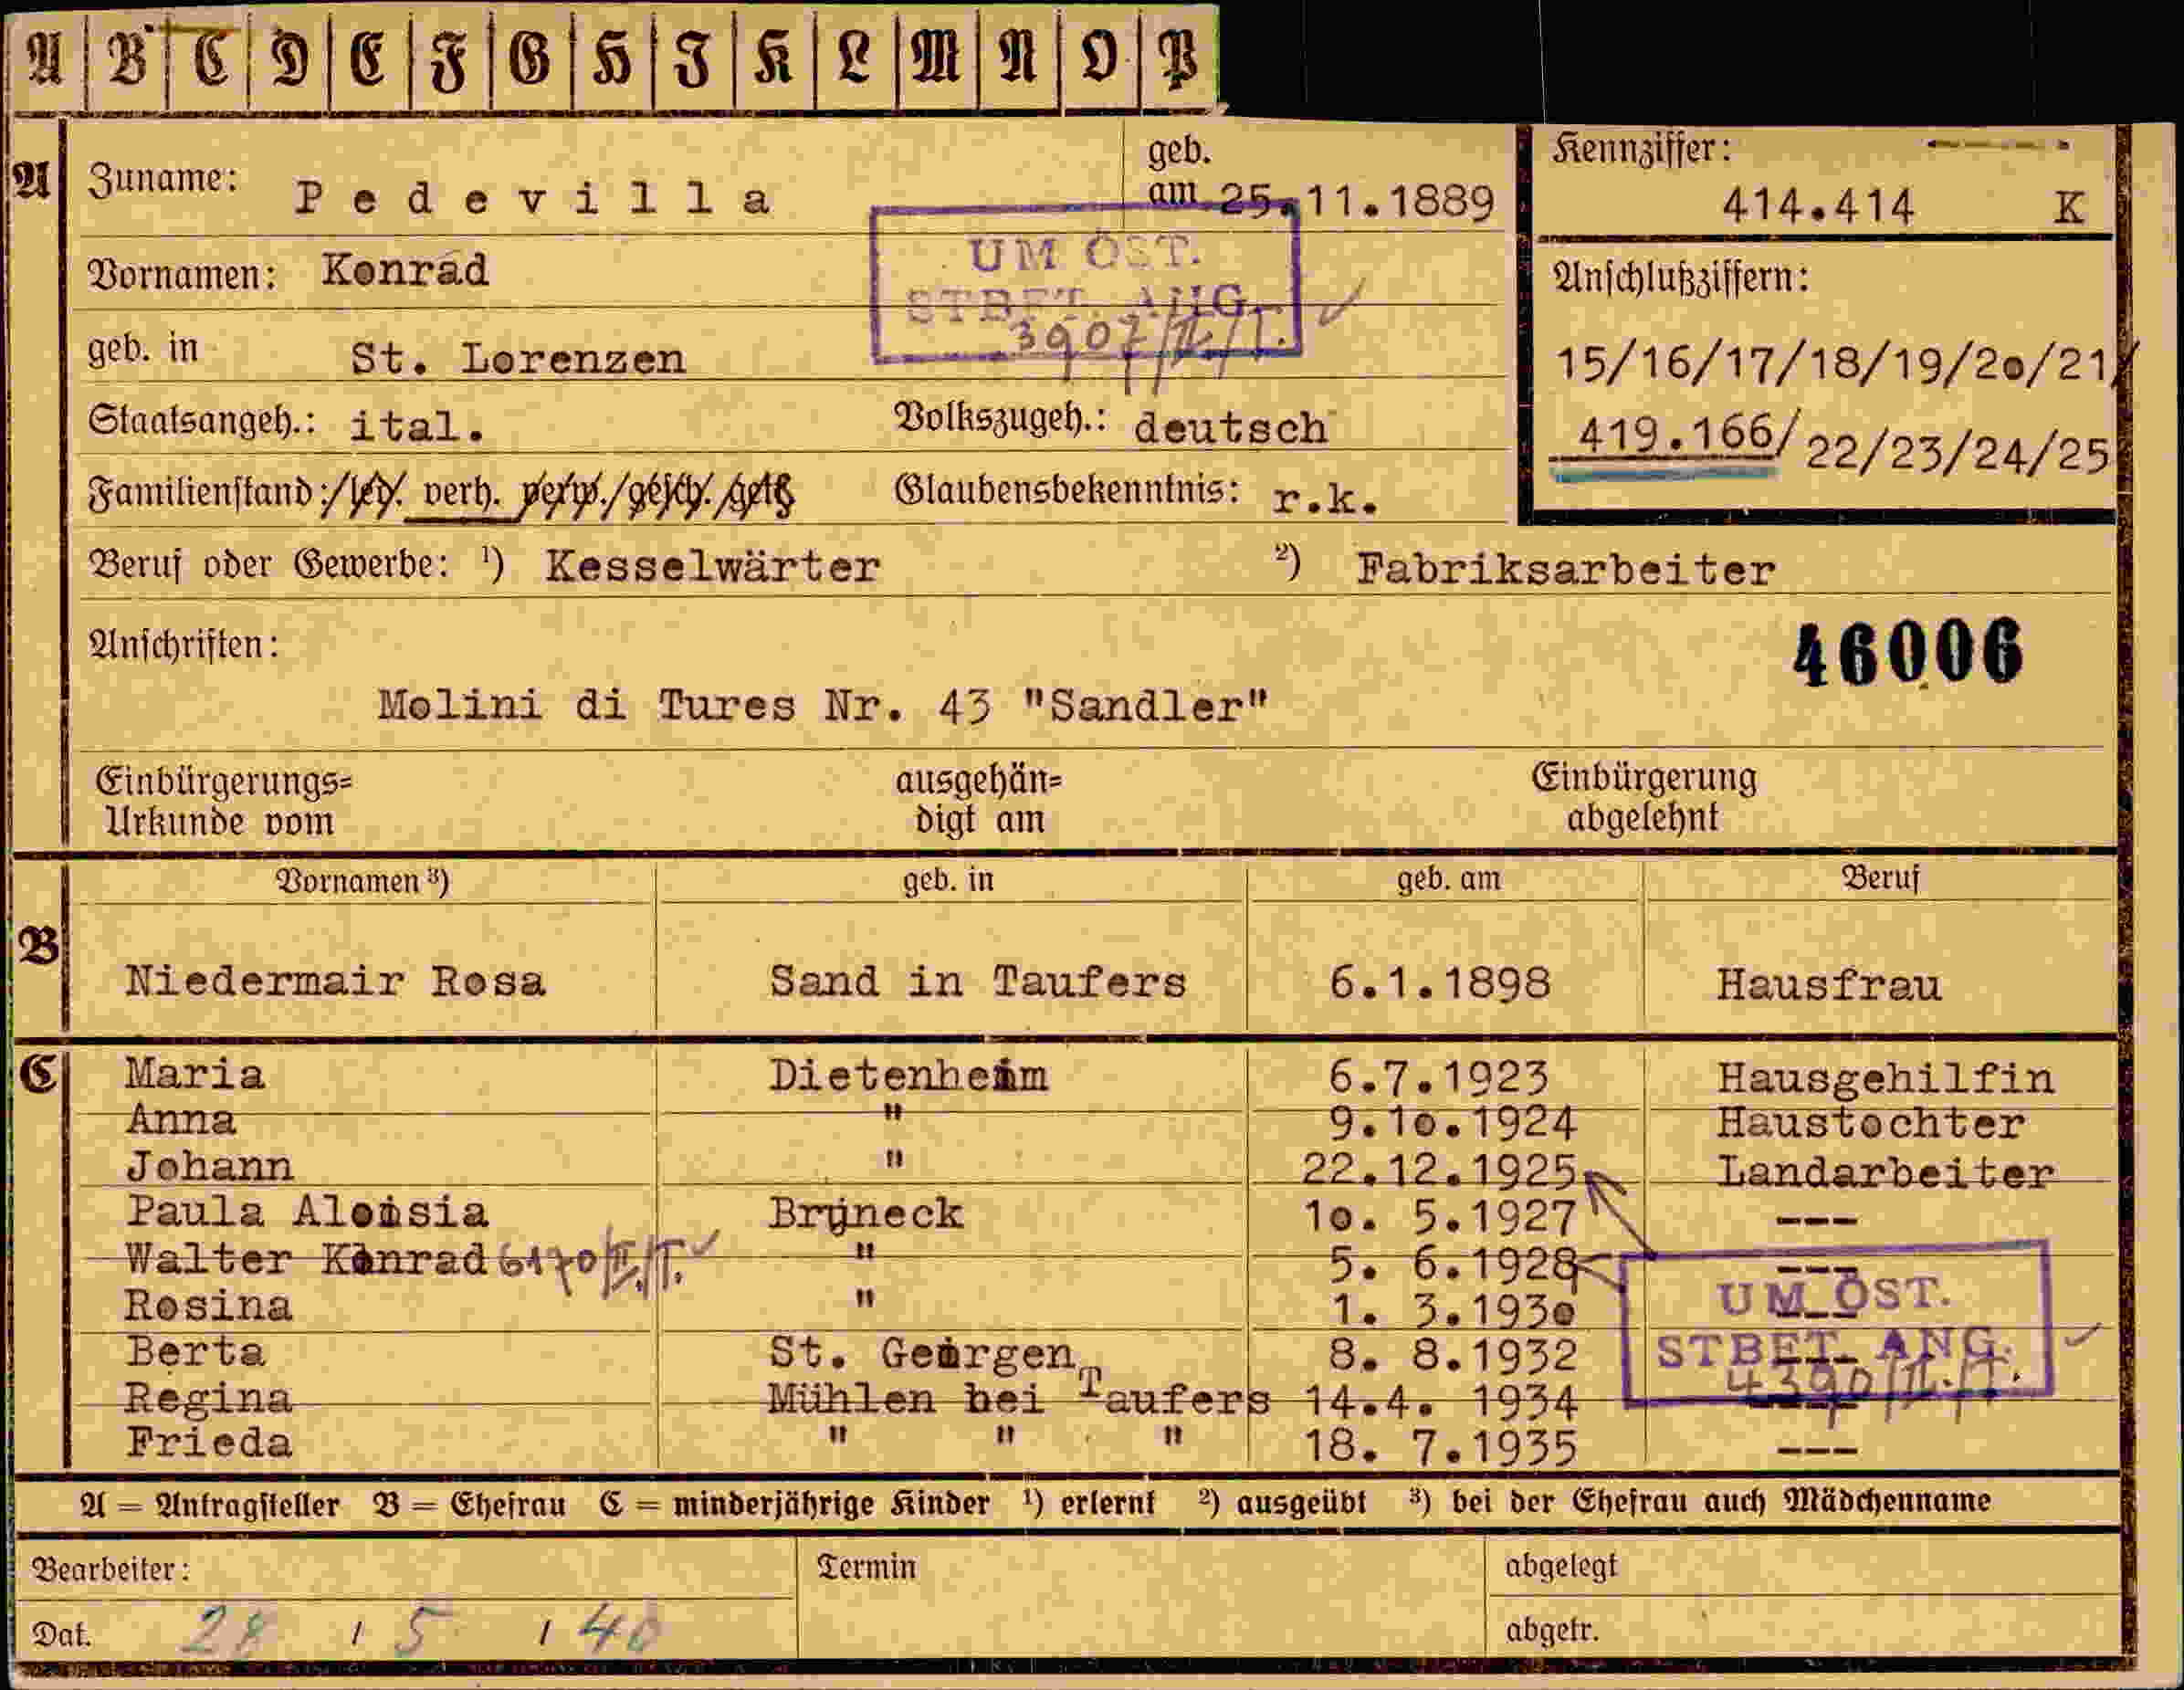 A B C D E F G H I K L M N O P
A Zuname: Pedevilla geb. am 25.11.1889
Kennziffer: 414.414 K
UM ÖST.
STBET. ANG.
3907/II/T.
Vornamen: Konrad
Anschlußziffern:
geb. in St. Lorenzen
15/16/17/18/19/2o/21/
Staatsangeh.: ital. Volkszugeh.: deutsch
419.166/22/23/24/25
Familienstand: /led. verh. verw./gesch./getr. Glaubensbekenntnis: r.k.
Beruf oder Gewerbe: ¹) Kesselwärter ²) Fabriksarbeiter
Anschriften:
46006
Molini di Tures Nr. 43 "Sandler"
Einbürgerungs= ausgehän= Einbürgerung
Urkunde vom digt am abgelehnt
Vornamen ³) geb. in geb. am Beruf
B
Niedermair Rosa Sand in Taufers 6.1.1898 Hausfrau
C Maria Dietenheim 6.7.1923 Hausgehilfin
Anna " 9.1o.1924 Haustochter
Johann " 22.12.1925 Landarbeiter
Paula Aloisia Bruneck 1o. 5.1927 ---
Walter Konrad 6170/II./T. " 5. 6.1928 ---
Rosina " 1. 3.193o ---
UM ÖST.
Berta St. Georgen 8. 8.1932 ---
STBET. ANG.
4390/II./T.
Regina Mühlen bei Taufers 14.4. 1934 ---
Frieda " " " 18. 7.1935 ---
A = Antragsteller B = Ehefrau C = minderjährige Kinder ¹) erlernt ²) ausgeübt ³) bei der Ehefrau auch Mädchenname
Bearbeiter: Termin abgelegt
Dat. 28 / 5 / 40 abgetr.